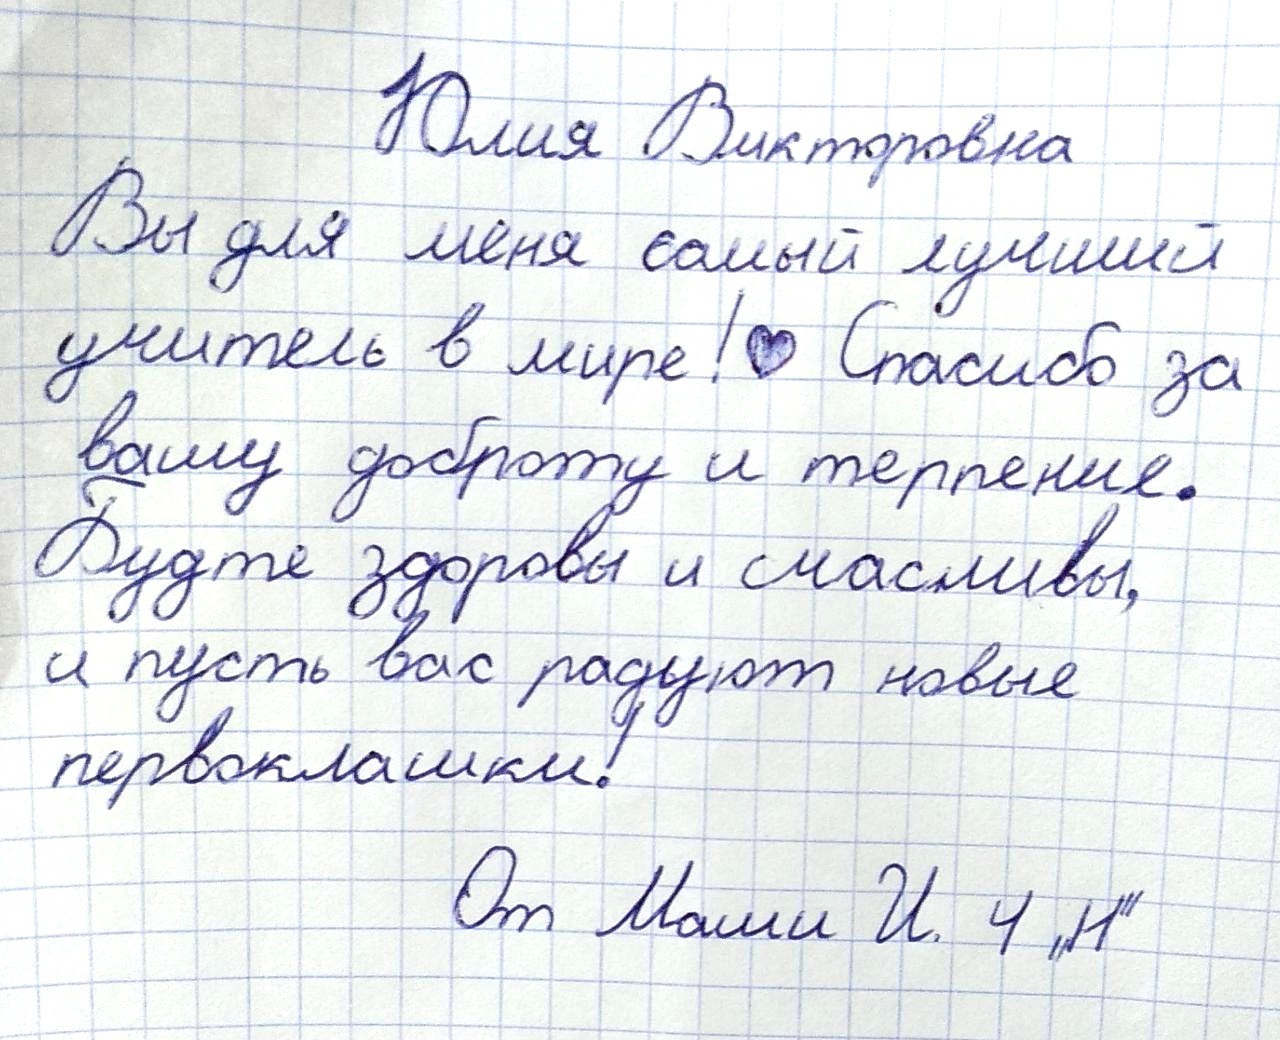 Юлия Викторовна
Вы для меня самый лучший
учитель в мире!♥ Спасибо за
вашу доброту и терпение.
Будте здоровы и счасливы,
и пусть вас радуют новые
первоклашки!
От Маши И. 4 „Н"